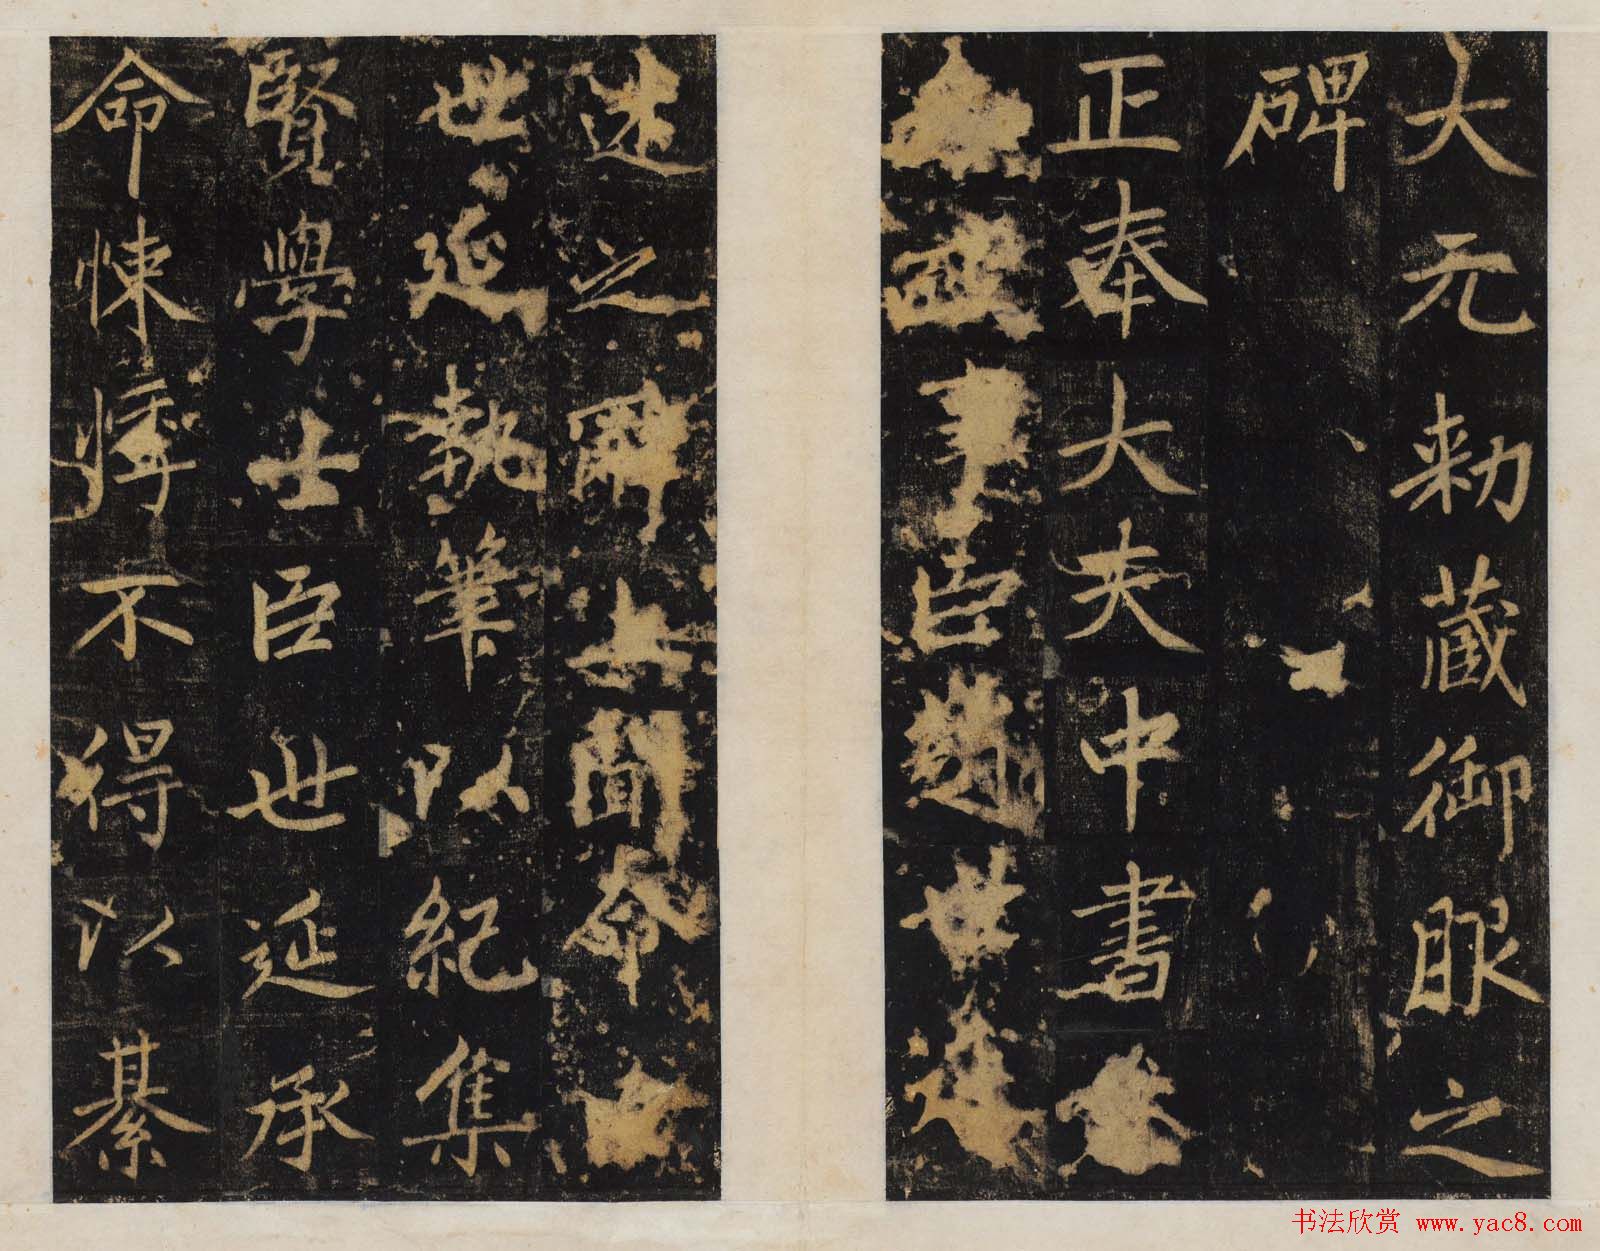 大元勑蔵御眼之
碑
正奉大夫中書
事臣趙世延
述之辭上聞命
世延執筆以紀集
賢學士臣世延承
命悚悸不得以綦
书法欣赏 www.yac8.com